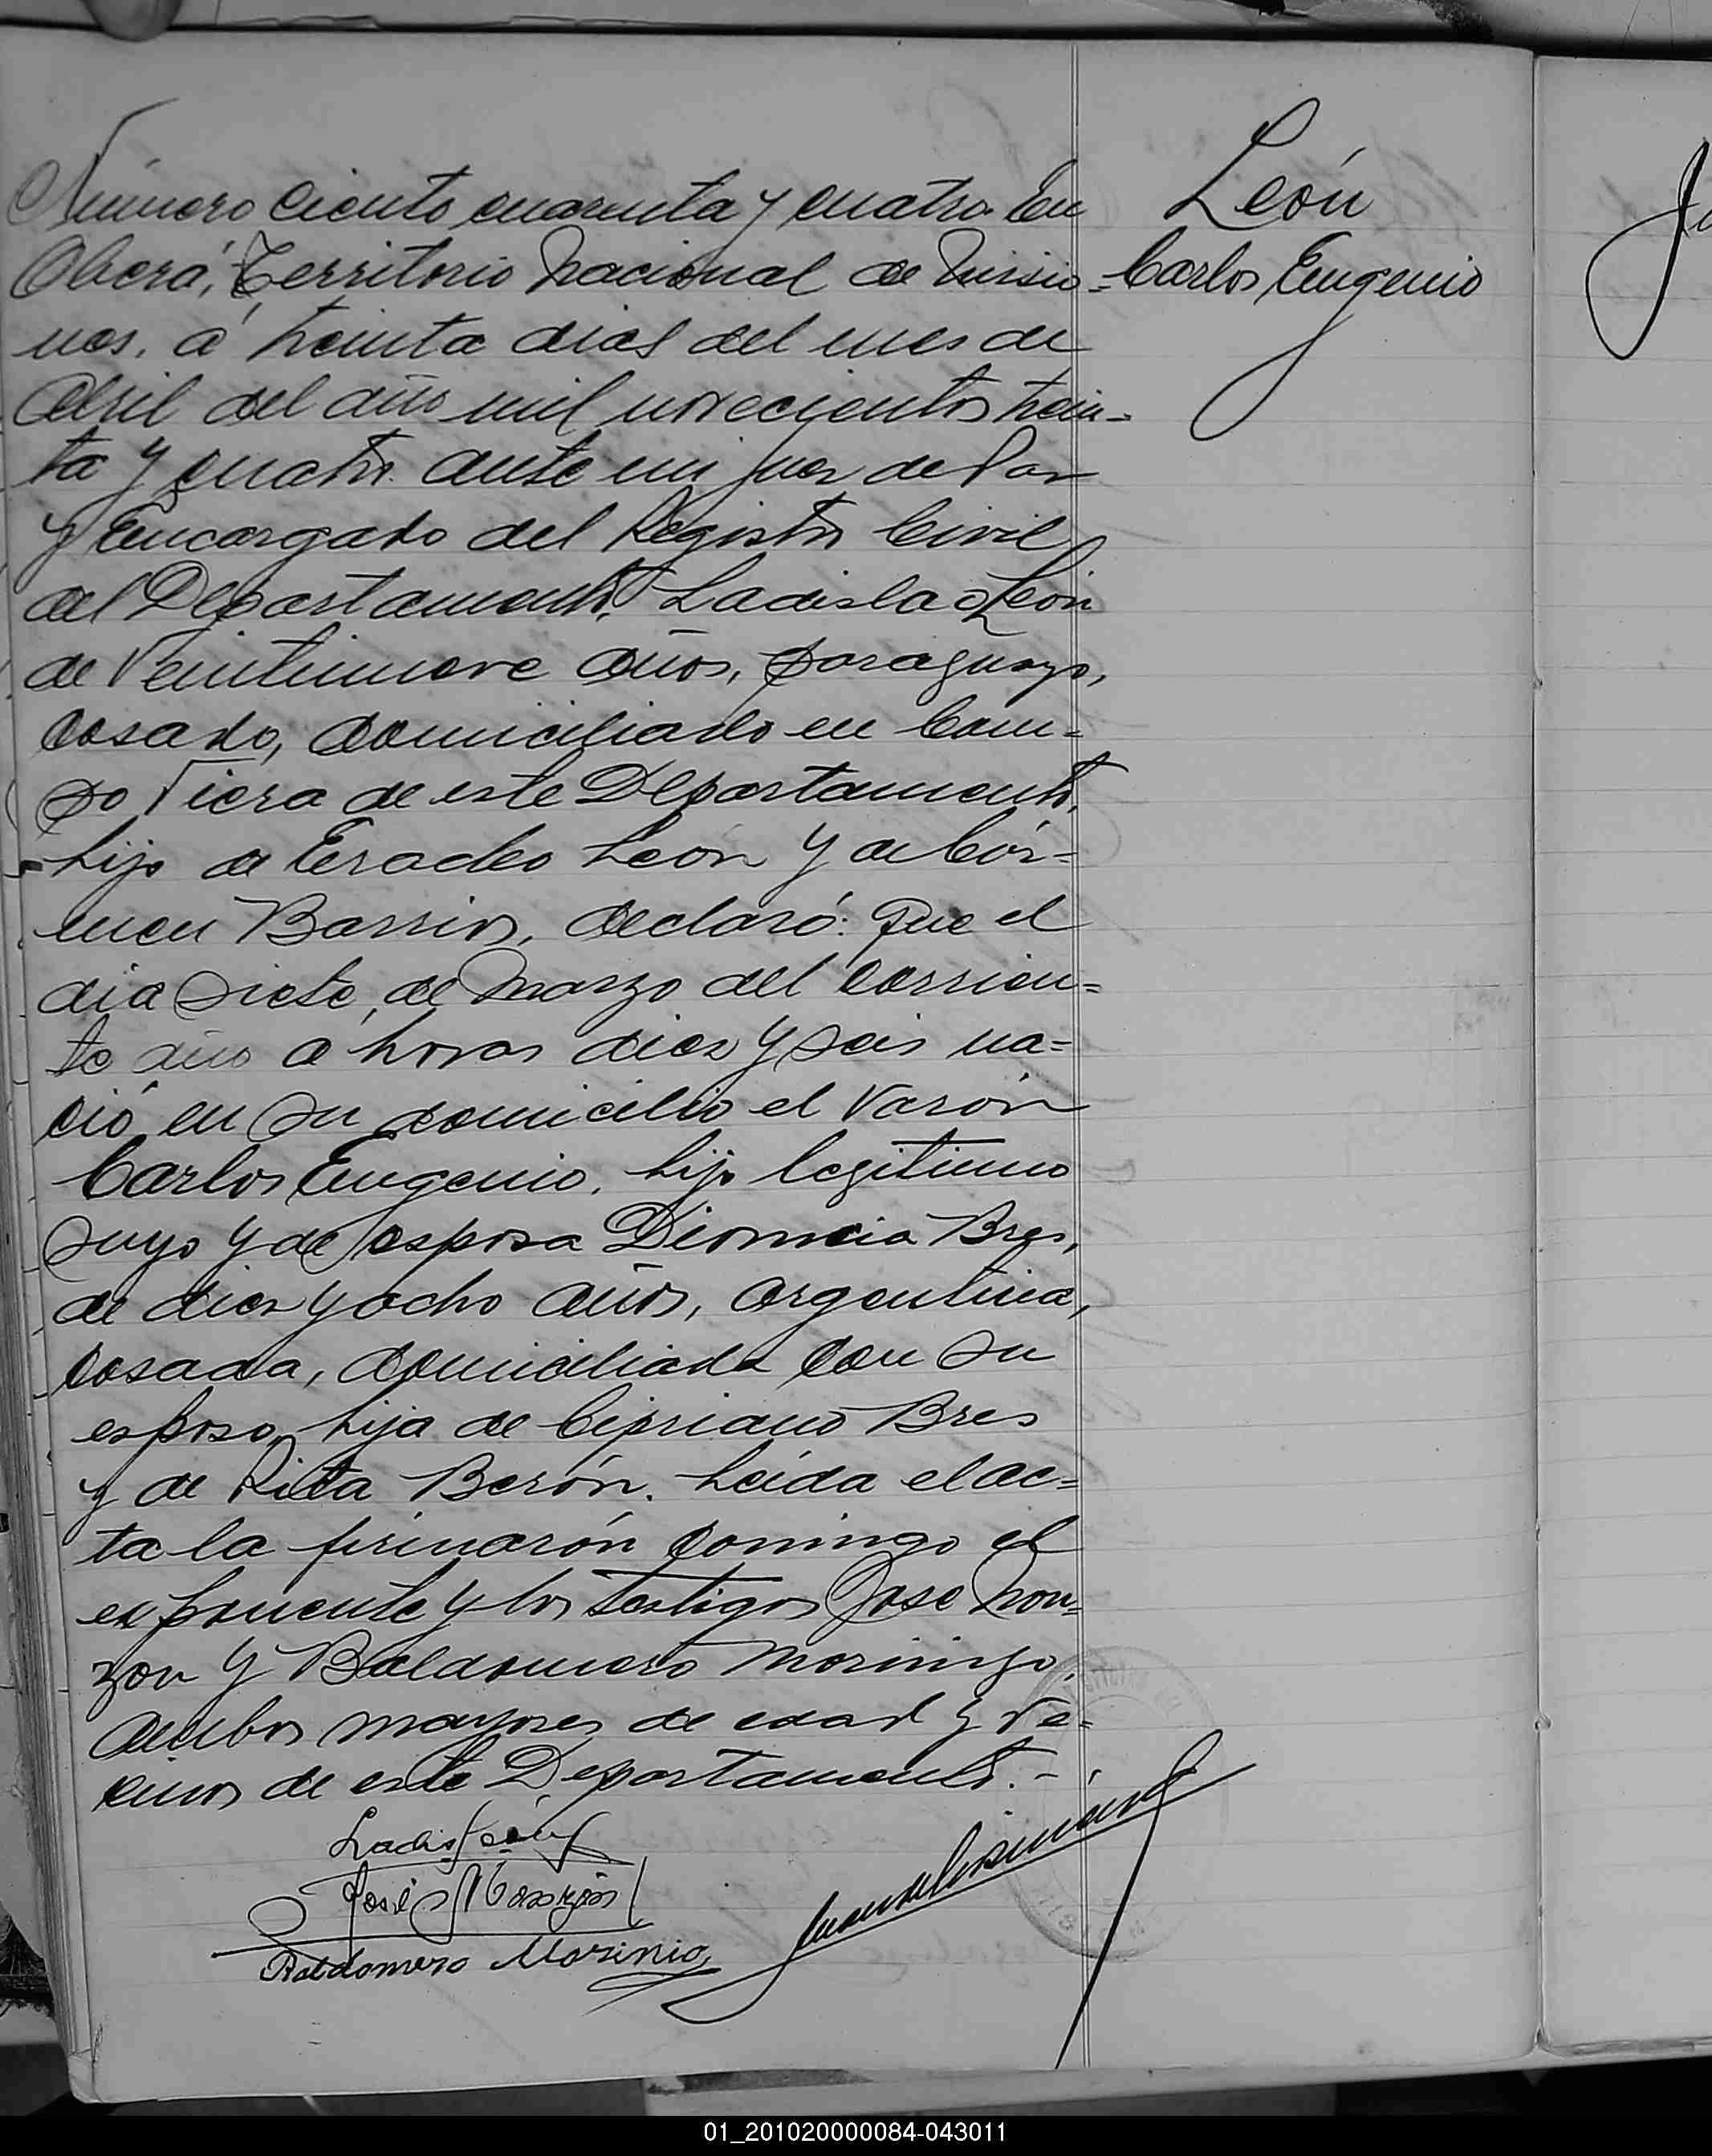 Número ciento cuarenta y cuatro. En
Oberá, Territorio Nacional de Misio=
nes, á treinta dias del mes de
Abril del año mil novecientos trein=
ta y cuatro. ante mi juez de Paz
y Encargado del Registro Civil
del Departamento, Ladislao León
de Veintinueve años, paraguayo,
casado, domiciliado en Cam=
po Viera de este Departamento,
hijo de León y de Cár=
men Barrios, declaró: que el
dia siete, de Marzo del corrien=
te año a horas diez y seis na=
ció en su domicilio el varón
Carlos Eugenio, hijo legitimo
suyo y de esposa Dionicia Bres,
de diez y ocho años, argentina,
casada, domiciliada con su
esposo, hija de Cipriano Bres
y de Rita Berón. Leida el ac=
ta la firmarón conmigo el
exponente y los testigos José Mon=
zon y Baldomero Morinigo,
ambos mayores de edad y ve=
cinos de este Departamento.-
Ladis León
José Monzón
Baldomero Morinio
León
Carlos Eugenio
01_201020000084-043011